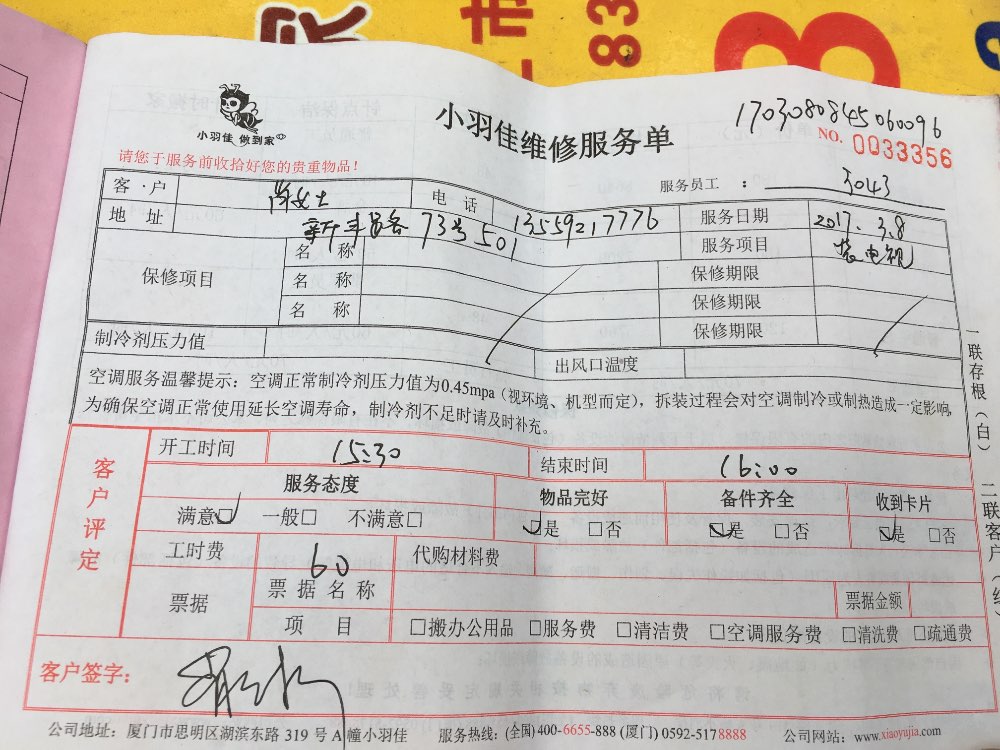 市
83
8
小羽佳 做到家
小羽佳维修服务单
1703080845060096
NO. 0033356
请您于服务前收拾好您的贵重物品！
服务员工 ： 5043
客 户 女士 电 话 13559217776 服务日期 2017. 3.8
地 址 新丰 73号501 服务项目 装电视
保修项目 名 称 保修期限
名 称 保修期限
名 称 保修期限
制冷剂压力值 出风口温度
空调服务温馨提示：空调正常制冷剂压力值为0.45mpa（视环境、机型而定），拆装过程会对空调制冷或制热造成一定影响，
为确保空调正常使用延长空调寿命，制冷剂不足时请及时补充。
一联存根（白） 二联客户（红）
客户评定
开工时间 15:30 结束时间 16:00
服务态度 物品完好 备件齐全 收到卡片
满意☑ 一般□ 不满意□ ☑是 □否 ☑是 □否 ☑是 □否
工时费 60 代购材料费
票据 票据名称 票据金额
项 目 □搬办公用品 □服务费 □清洁费 □空调服务费 □清洗费 □疏通费
客户签字：
公司地址：厦门市思明区湖滨东路 319 号 A 幢小羽佳 服务热线：(全国) 400-6655-888 (厦门) 0592-5178888 公司网站：www.xiaoyujia.com